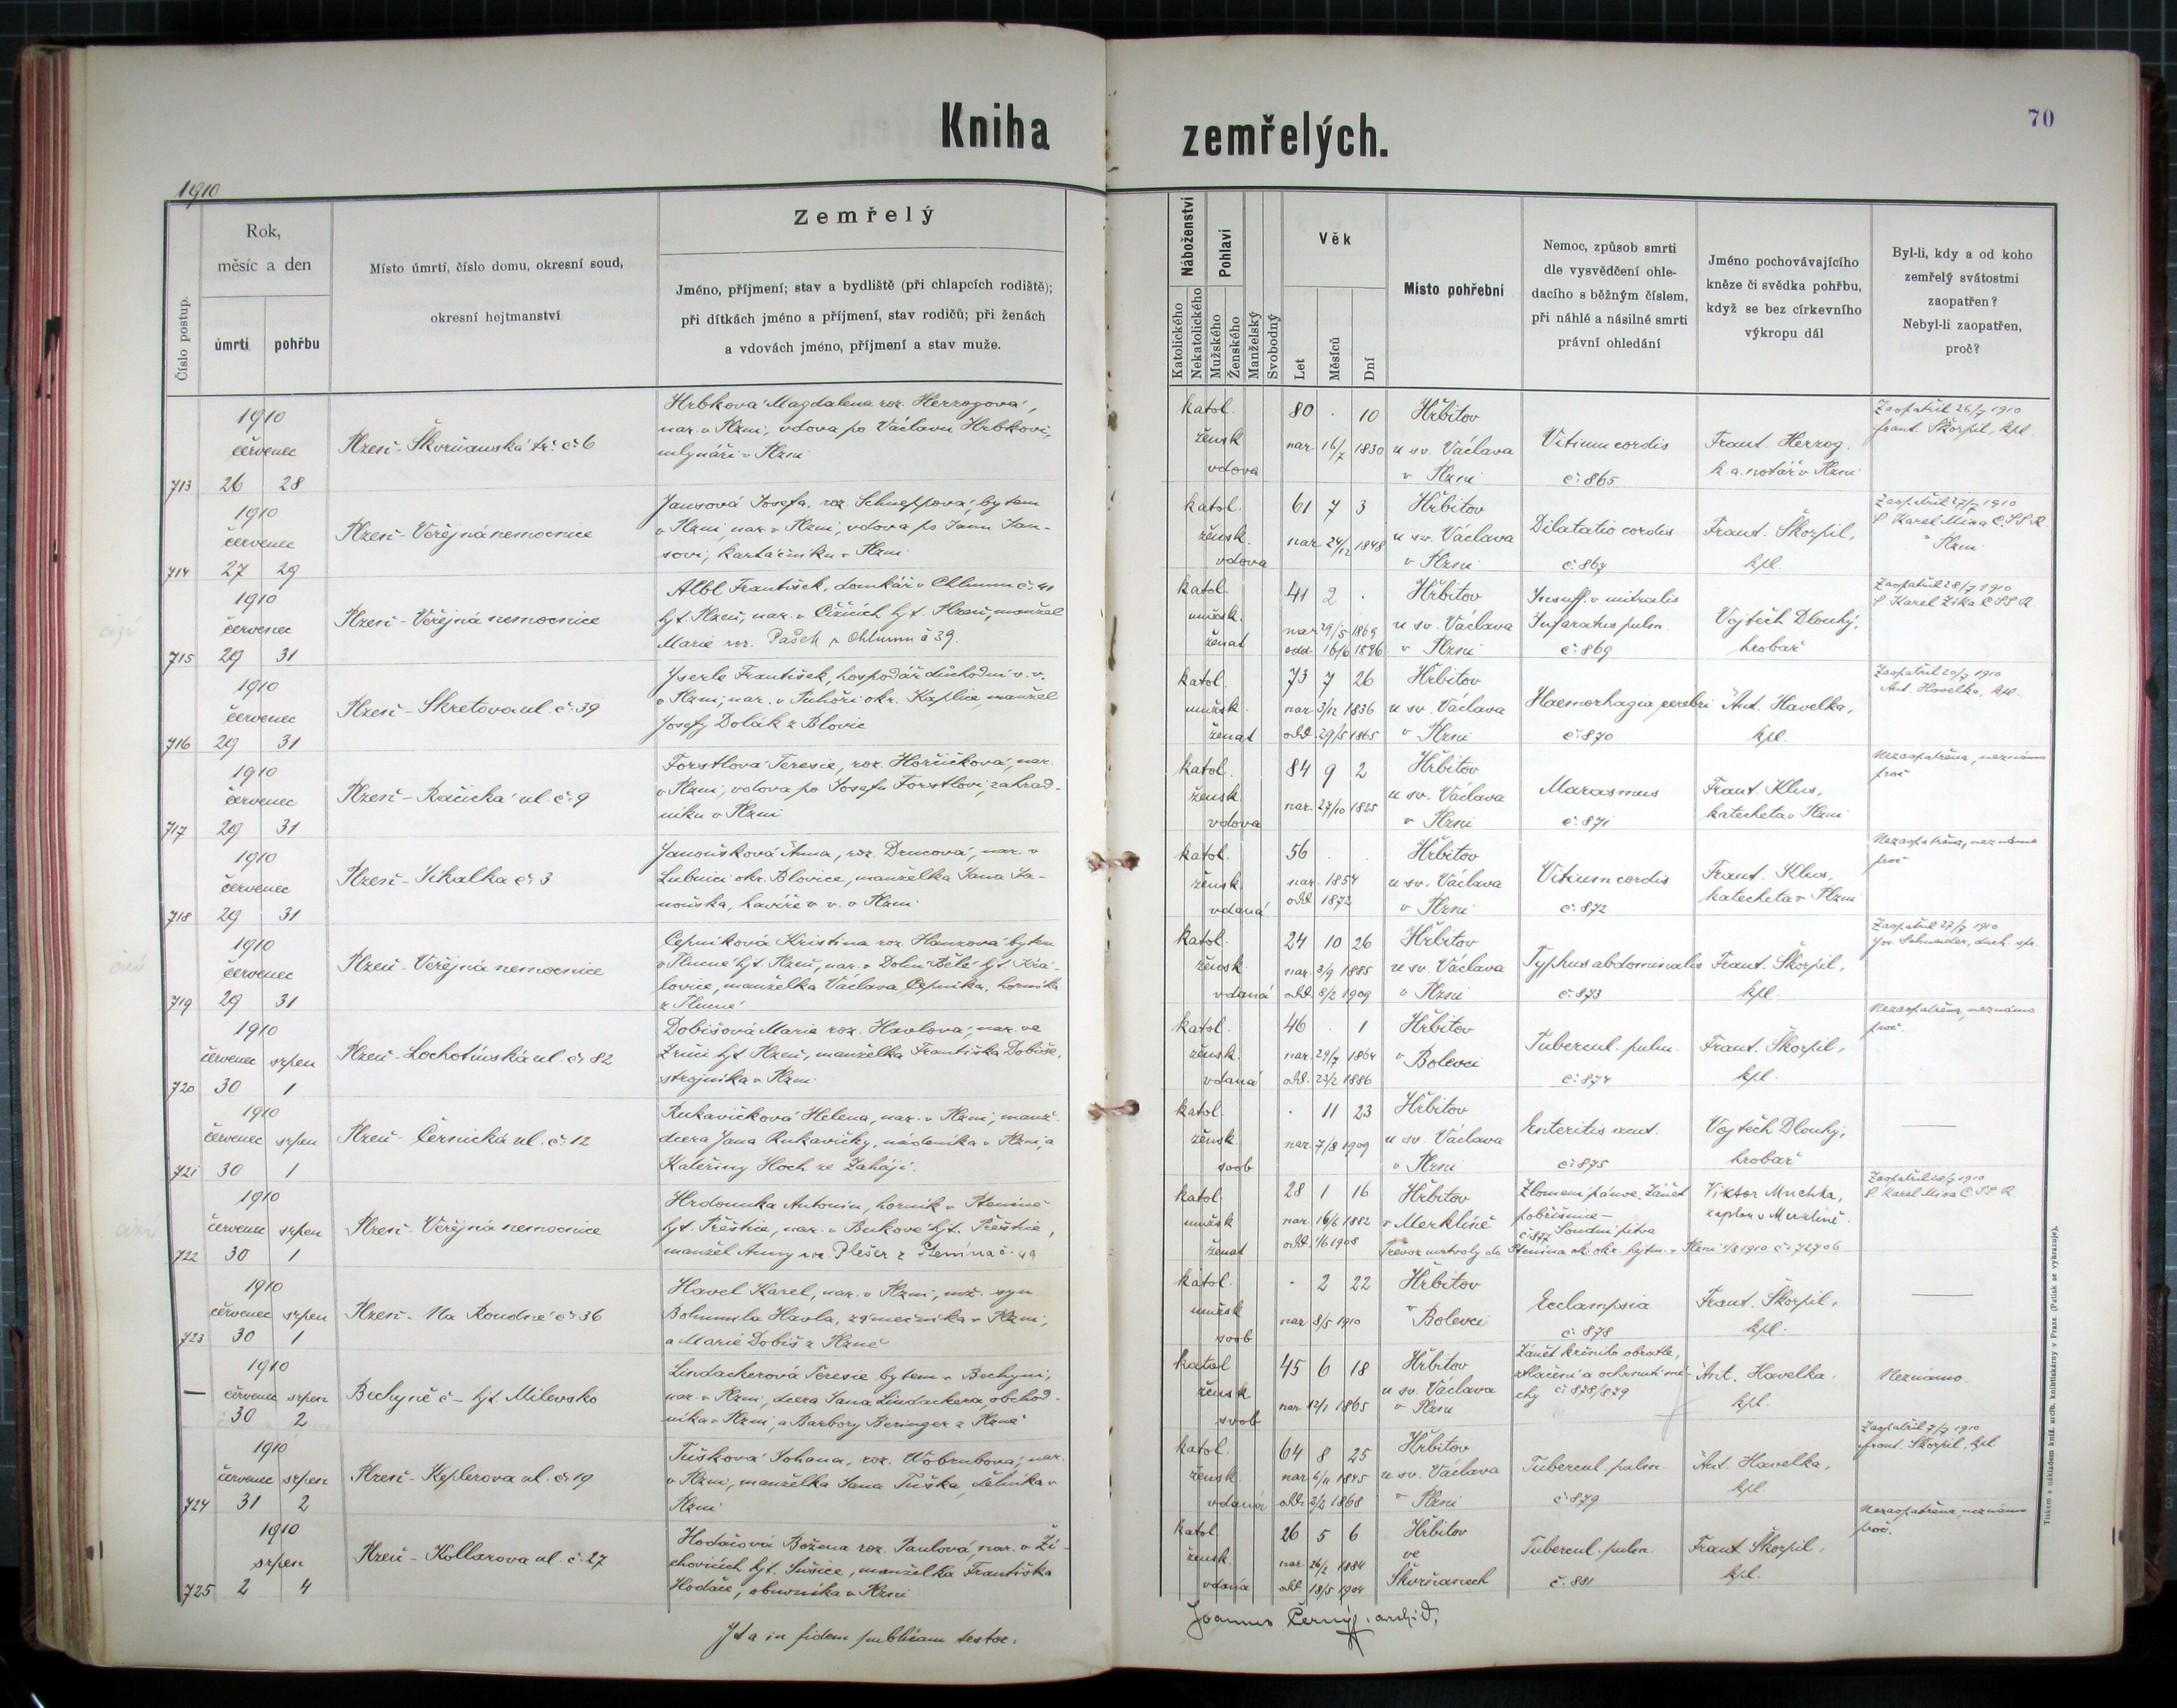 Kniha zemřelých.
70
1910
Číslo postup.
Rok,
měsíc a den
úmrtí
pohřbu
Místo úmrtí, číslo domu, okresní soud,
okresní hejtmanství
Zemřelý
Jméno, příjmení; stav a bydliště (při chlapcích rodiště);
při dítkách jméno a příjmení, stav rodičů; při ženách
a vdovách jméno, příjmení a stav muže.
Náboženství
Katolického
Nekatolického
Pohlaví
Mužského
Ženského
Manželský
Svobodný
Věk
Let
Měsíců
Dní
Místo pohřební
Nemoc, způsob smrti
dle vysvědčení ohle-
dacího s běžným číslem,
při náhlé a násilné smrti
právní ohledání
Jméno pochovávajícího
kněze či svědka pohřbu,
když se bez církevního
výkropu dál
Byl-li, kdy a od koho
zemřelý svátostmi
zaopatřen?
Nebyl-li zaopatřen,
proč?
713
1910
červenec
26 28
Plzeň - Škvrňanská tř. č. 6
Hrbková Magdalena roz. Herzogová,
nar. v Plzni, vdova po Václavu Hrbkovi,
mlynáři v Plzni
katol.
žensk
vdova
80 . 10
nar. 16/7 1830
Hřbitov
u sv. Václava
v Plzni
Vitium cordis
č. 865
Frant. Herzog.
k. a. notář v Plzni
Zaopatřil 26/7 1910
Frant. Škorpil, kpl.
714
1910
červenec
27 29
Plzeň - Veřejná nemocnice
Jansová Josefa, roz. Schneppová, bytem
v Plzni, nar. v Plzni, vdova po Janu Jan-
sovi, kartáčníku v Plzni
katol.
žensk.
vdova
61 7 3
nar 24/12 1848
Hřbitov
u sv. Václava
v Plzni
Dilatatio cordis
č. 867
Frant. Škorpil,
kpl.
Zaopatřil 27/7 1910
P. Karel Mina C.SS.R.
v Plzni
715
1910
červenec
29 31
Plzeň - Veřejná nemocnice
Albl František, domkář v Chlumu č. 41
hjt. Plzeň, nar. v Čižicích hjt. Plzeň, manžel
Marie roz. Pašek z Chlumu č 39.
katol.
mužsk.
ženat
41 2 .
nar 29/5 1869
odd. 16/6 1896
Hřbitov
u sv. Václava
v Plzni
Insuff. v. mitralis
Infarctus pulm.
č. 869
Vojtěch Dlouhý,
hrobař
Zaopatřil 28/7 1910
P. Karel Zika C.SS.R.
716
1910
červenec
29 31
Plzeň - Skretova ul. č. 39
Yserle František, hospodář. důchodní v. v.
v Plzni, nar. v Puhoři okr. Kaplice, manžel
Josefy Dolák z Blovic
katol.
mužsk.
ženat
73 7 26
nar. 3/12 1836
odd. 29/5 1865
Hřbitov
u sv. Václava
v Plzni
Haemorhagia cerebri
č. 870
Ant. Havelka,
kpl.
Zaopatřil 20/7 1910
Ant. Havelka, kpl.
717
1910
červenec
29 31
Plzeň - Račická ul. č. 9
Forstlová Teresie, roz. Hořčičková, nar.
v Plzni, vdova po Josefu Forstlovi, zahrad-
níku v Plzni
katol.
žensk.
vdova
84 9 2
nar. 27/10 1825
Hřbitov
u sv. Václava
v Plzni
Marasmus
č. 871
Frant. Klus,
katecheta v Plzni
Nezaopatřena, neznámo
proč
718
1910
červenec
29 31
Plzeň - Jikalka č. 3
Janoušková Anna, roz. Drncová, nar. v
Lubnici okr. Blovice, manželka Jana Ja-
nouška, havíře v. v. v Plzni
katol.
žensk.
vdaná
56 . .
nar. 1854
odd. 1872
Hřbitov
u sv. Václava
v Plzni
Vitium cordis
č. 872
Frant. Klus,
katecheta v Plzni
Nezaopatřena, neznámo
proč
719
1910
červenec
29 31
Plzeň - Veřejná nemocnice
Čepníková Kristina roz. Hanzová bytem
v Tlucné hjt. Plzeň, nar. v Dolní Bělé hjt. Krá-
lovice, manželka Václava Čepníka, horníka
z Tlucné
katol.
žensk.
vdaná
24 10 26
nar. 3/9 1885
odd. 8/2 1909
Hřbitov
u sv. Václava
v Plzni
Typhus abdominalis
č. 873
Frant. Škorpil,
kpl.
Zaopatřil 27/7 1910
Jos. Schneider, duch. spr.
720
1910
červenec srpen
30 1
Plzeň - Lochotínská ul. č. 82
Dobišová Marie roz. Havlová, nar. ve
Zruči hjt. Plzeň, manželka Františka Dobiše,
strojníka v Plzni
katol.
žensk.
vdaná
46 . 1
nar. 29/7 1864
odd. 23/2 1886
Hřbitov
v
Bolevci
Tubercul. pulm.
č. 874
Frant. Škorpil,
kpl.
Nezaopatřena, neznámo
proč.
721
1910
červenec srpen
30 1
Plzeň - Černická ul. č. 12
Rukavičková Helena, nar. v Plzni, manž.
dcera Jana Rukavičky, nádeníka v Plzni, a
Kateřiny Hoch ze Zahájí.
katol.
žensk.
svob
. 11 23
nar. 7/8 1909
Hřbitov
u sv. Václava
v Plzni
Enteritis acut.
č. 875
Vojtěch Dlouhý,
hrobař
722
1910
červenec srpen
30 1
Plzeň - Veřejná nemocnice
Hrdonka Antonín, horník v Stenině
hjt. Přeštice, nar. v Bukové hjt. Přeštice,
manžel Anny roz. Plešer z Stenína č. 49
katol.
mužsk
ženat
28 1 16
nar. 16/6 1882
odd. 1/6 1908
Hřbitov
v Merklíně
Zlomení pánve. Zánět
pobřišnice -
č. 877 Soudní pitva
Převoz mrtvoly do Stenina ok. okr. hejtm. v Plzni 1/8 1910 č. 72706
Viktor Muchka,
kaplan v Merklíně.
P. Karel Mina C.SS.R.
723
1910
červenec srpen
30 1
Plzeň - Na Roudné č. 36
Havel Karel, nar. v Plzni, mž. syn
Bohumila Havla, zámečníka v Plzni,
a Marie Dobiš z Plzně
katol.
mužsk
svob
. 2 22
nar 8/5 1910
Hřbitov
v
Bolevci
Ecclampsia
č. 878
Frant. Škorpil,
kpl.
—
1910
červenec srpen
30 2
Bechyně č - hjt. Milevsko
Lindackerová Teresie bytem v Bechyni,
nar. v Plzni, dcera Jana Lindackera, obchod-
níka v Plzni, a Barbory Beringer z Plzně
katol
žensk
svob
45 6 18
nar. 12/1 1865
Hřbitov
u sv. Václava
v Plzni
Zánět křížního obratle,
stlačení a ochrnutí mí-
chy č. 828/879
Ant. Havelka.
kpl.
Neznámo.
724
1910
červenec srpen
31 2
Plzeň - Keplerova ul. č. 19
Tušková Johana, roz. Wobrubova, nar.
v Plzni, manželka Jana Tuška, dělníka v
Plzni
katol.
žensk
vdaná
64 8 25
nar 6/11 1845
odd. 2/2 1868
Hřbitov
u sv. Václava
v Plzni
Tubercul. pulm.
č. 879
Ant. Havelka,
kpl
Zaopatřil 7/7 1910
Frant. Škorpil, kpl
725
1910
srpen
2 4
Plzeň - Kollarova ul. č. 27
Hodačová Božena roz. Paulová, nar. v Ži-
chovicích hjt. Sušice, manželka Františka
Hodače, obuvníka v Plzni
katol
žensk.
vdaná
26 5 6
nar. 26/2 1884
odd. 18/5 1904
Hřbitov
ve
Škvrňanech
Tubercul. pulm.
č. 881
Frant Škorpil,
kpl.
Nezaopatřena, neznámo
proč.
Ita in fidem publicam testor.
Joannes Černý, archid.
Tiskem a nákladem kníž. arcib. knihtiskárny v Praze. (Patisk se vykazuje).